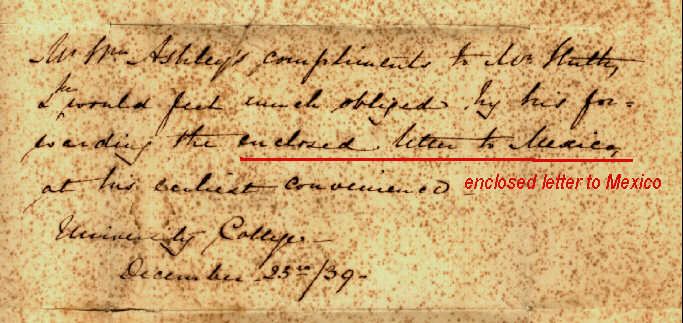 Mr Wm Ashley's compliments to Mr
& would feel much obliged by his for=
warding the enclosed letter to Mexico,
at his earliest convenience -
enclosed letter to Mexico
University College -
December 23rd/39 -